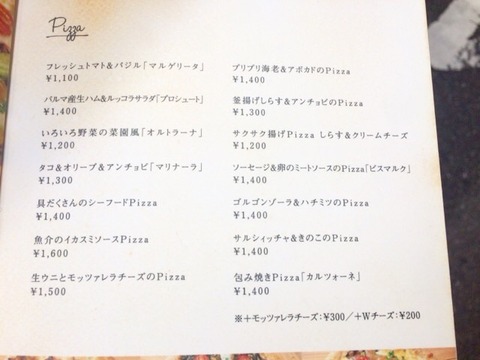 Pizza
フレッシュトマト&バジル「マルゲリータ」
¥1,100
パルマ産生ハム&ルッコラサラダ「プロシュート」
¥1,400
いろいろ野菜の菜園風「オルトラーナ」
¥1,200
タコ&オリーブ&アンチョビ「マリナーラ」
¥1,300
具だくさんのシーフードPizza
¥1,400
魚介のイカスミソースPizza
¥1,600
生ウニとモッツァレラチーズのPizza
¥1,500
プリプリ海老&アボカドのPizza
¥1,400
釜揚げしらす&アンチョビのPizza
¥1,400
サクサク揚げPizza しらす&クリームチーズ
¥1,200
ソーセージ&卵のミートソースのPizza「ビスマルク」
¥1,400
ゴルゴンゾーラ&ハチミツのPizza
¥1,400
サルシィッチャ&きのこのPizza
¥1,400
包み焼きPizza「カルツォーネ」
¥1,400
※+モッツァレラチーズ:¥300/+Wチーズ:¥200